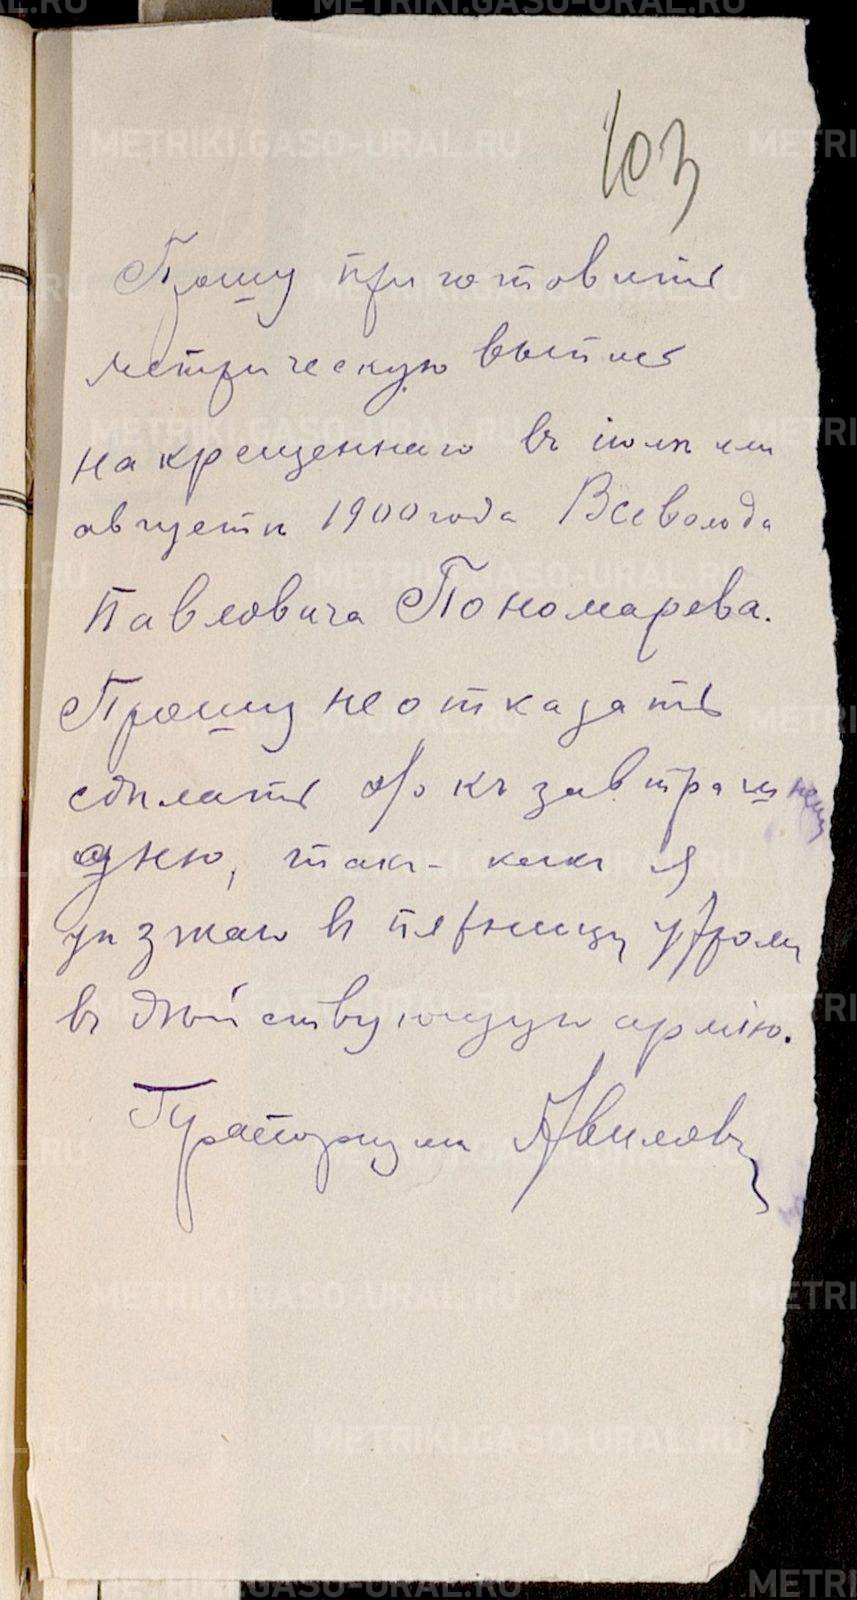 103
Прошу приготовить
метрическую выпись
на крещеннаго въ іюлѣ или
августѣ 1900 года Всеволода
Павловича Пономарева.
Прошу не отказать
сдѣлать это къ завтрашнему
дню, такъ-какъ я
уѣзжаю въ пятницу утромъ
въ дѣйствующую армію.
Прапорщикъ Авиловъ
METRIKI.GASO-URAL.RU